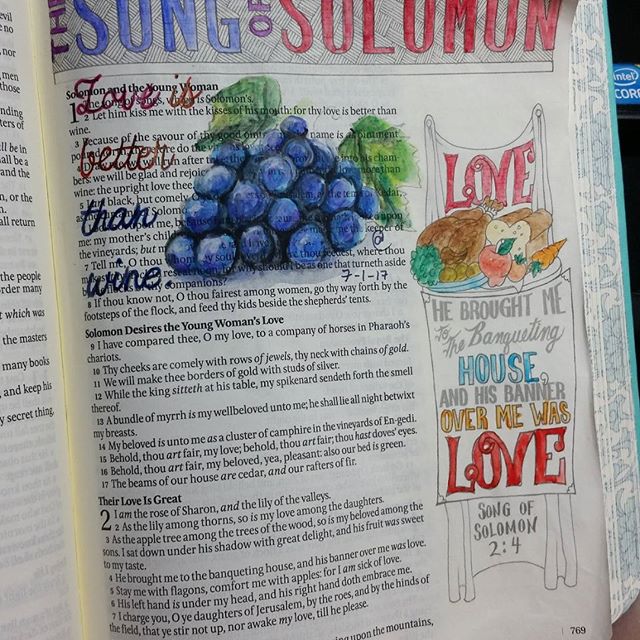 THE SONG OF SOLOMON
Love is
better
than
wine.
7-1-17
Solomon and the Young Woman
1 The song of songs, which is Solomon's.
2 Let him kiss me with the kisses of his mouth: for thy love is better than
wine.
3 Because of the savour of thy good ointments name is as ointment
bers: we will be glad and rejoice more than
wine: the upright love thee.
5 I am black, but comely, Jerusalem, as the tents of Kedar,
me: my mother's children me the keeper of
the vineyards; but mine
7 Tell me, O thou whom my soul loveth, where thou feedest, where thou
for why should I be as one that turneth aside
companions?
8 If thou know not, O thou fairest among women, go thy way forth by the
footsteps of the flock, and feed thy kids beside the shepherds' tents.
Solomon Desires the Young Woman's Love
9 I have compared thee, O my love, to a company of horses in Pharaoh's
chariots.
10 Thy cheeks are comely with rows of jewels, thy neck with chains of gold.
11 We will make thee borders of gold with studs of silver.
12 While the king sitteth at his table, my spikenard sendeth forth the smell
thereof.
13 A bundle of myrrh is my wellbeloved unto me; he shall lie all night betwixt
my breasts.
14 My beloved is unto me as a cluster of camphire in the vineyards of En-gedi.
15 Behold, thou art fair, my love; behold, thou art fair; thou hast doves' eyes.
16 Behold, thou art fair, my beloved, yea, pleasant: also our bed is green.
17 The beams of our house are cedar, and our rafters of fir.
Their Love Is Great
2 I am the rose of Sharon, and the lily of the valleys.
2 As the lily among thorns, so is my love among the daughters.
3 As the apple tree among the trees of the wood, so is my beloved among the
sons. I sat down under his shadow with great delight, and his fruit was sweet
to my taste.
4 He brought me to the banqueting house, and his banner over me was love.
5 Stay me with flagons, comfort me with apples: for I am sick of love.
6 His left hand is under my head, and his right hand doth embrace me.
7 I charge you, O ye daughters of Jerusalem, by the roes, and by the hinds of
the field, that ye stir not up, nor awake my love, till he please.
upon the mountains,
LOVE
HE BROUGHT ME
To The Banqueting
HOUSE,
AND HIS BANNER
OVER ME WAS
LOVE
SONG OF
SOLOMON
2:4
769
evil
, nor
, men
those
nding
ters of
ill be in
all be a
and the
n, or the
all return
the people
order many
t which was
the masters
many books
, and keep his
y secret thing,
intel
CORE